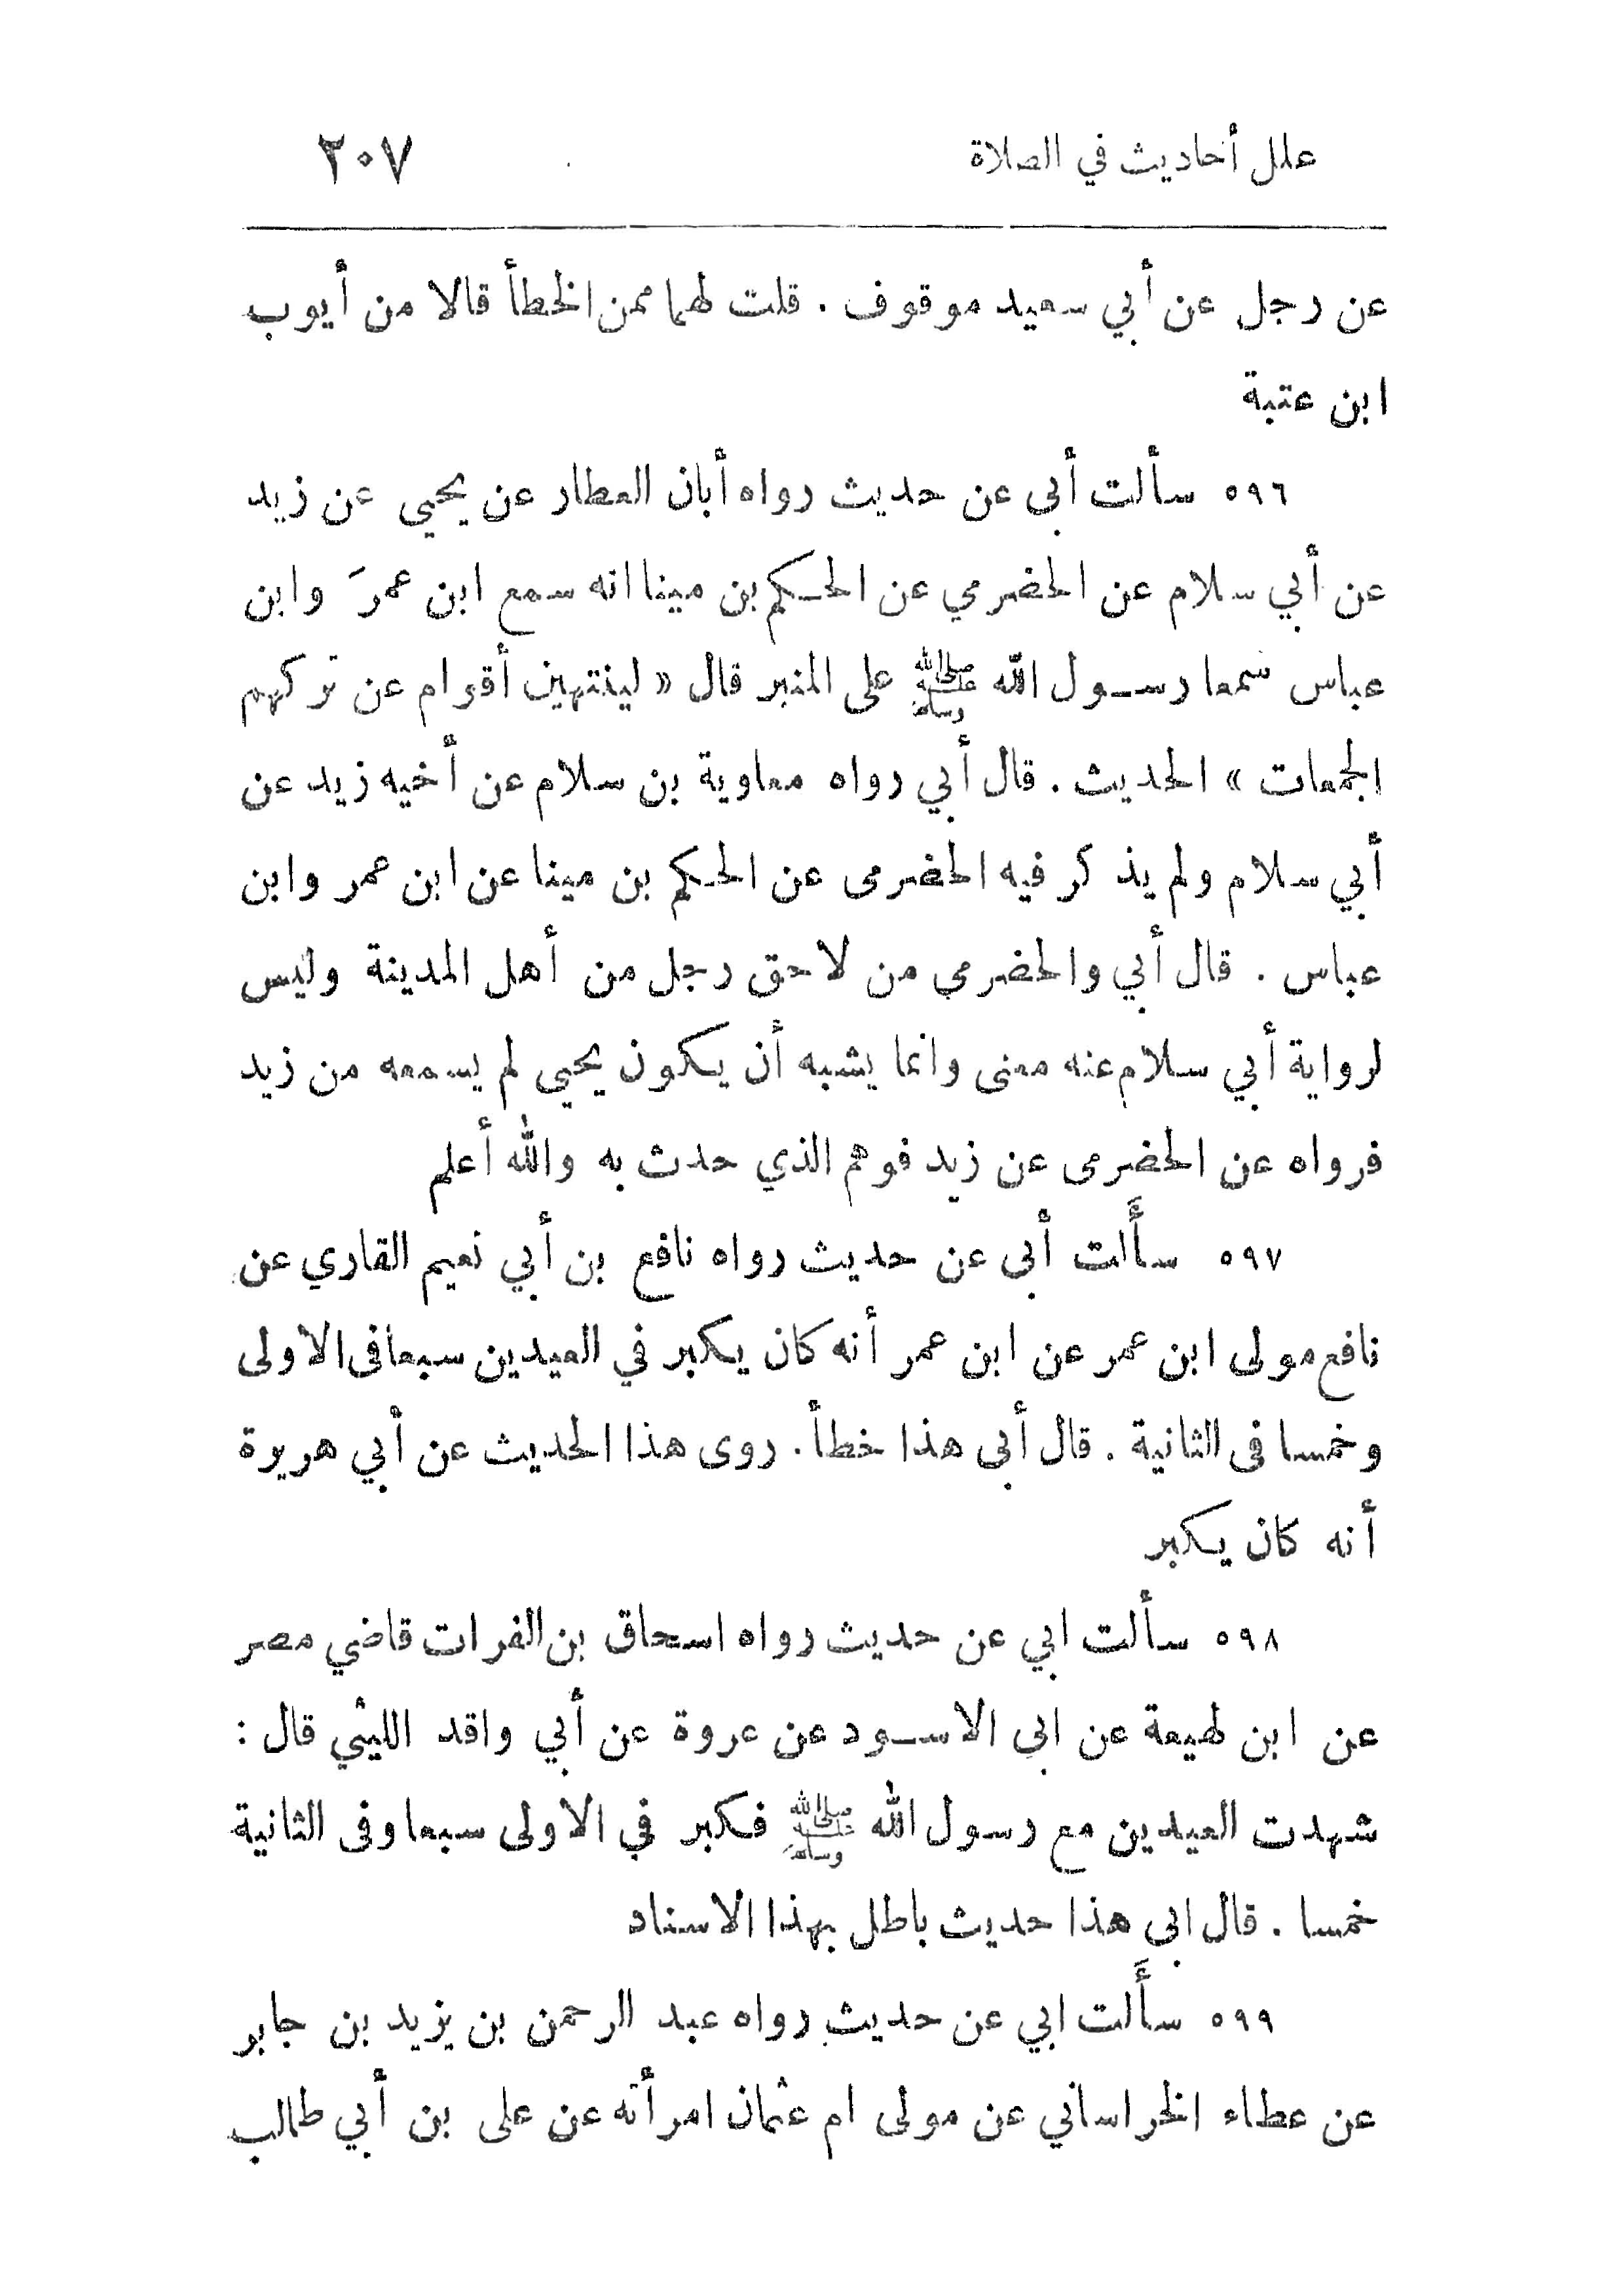 علل أحاديث في الصلاة ٢٠٧
عن رجل عن أبي سعيد موقوف . قلت لهما ممن الخطأ قالا من أيوب
ابن عتبة
٥٩٦ سألت أبى عن حديث رواه أبان العطار عن يحيى عن زيد
عن أبي سلام عن الحضرمي عن الحكم بن مينا انه سمع ابن عمرَ وابن
عباس سمعا رسول الله ﷺ على المنبر قال « لينتهين أقوام عن تركهم
الجمعات » الحديث . قال أبي رواه معاوية بن سلام عن أخيه زيد عن
أبي سلام ولم يذكر فيه الحضرمى عن الحكم بن مينا عن ابن عمر وابن
عباس . قال أبي والحضرمي من لاحق رجل من أهل المدينة وليس
لرواية أبي سلام عنه معنى وانما يشبه أن يكون يحيى لم يسمعه من زيد
فرواه عن الحضرمى عن زيد فوهم الذي حدث به والله أعلم
٥٩٧ سأَلت أبى عن حديث رواه نافع بن أبي نعيم القاري عن
نافع مولى ابن عمر عن ابن عمر أنه كان يكبر في العيدين سبعا فى الاولى
وخمسا فى الثانية . قال أبى هذا خطأ . روى هذا الحديث عن أبي هريرة
أنه كان يكبر
٥٩٨ سألت ابي عن حديث رواه اسحاق بن الفرات قاضي مصر
عن ابن لهيعة عن ابى الاسود عن عروة عن أبي واقد الليثي قال :
شهدت العيدين مع رسول الله ﷺ فكبر في الاولى سبعا وفى الثانية
خمسا . قال ابى هذا حديث باطل بهذا الاسناد
٥٩٩ سأَلت ابي عن حديث رواه عبد الرحمن بن يزيد بن جابر
عن عطاء الخراساني عن مولى ام عثمان امرأته عن على بن أبي طالب